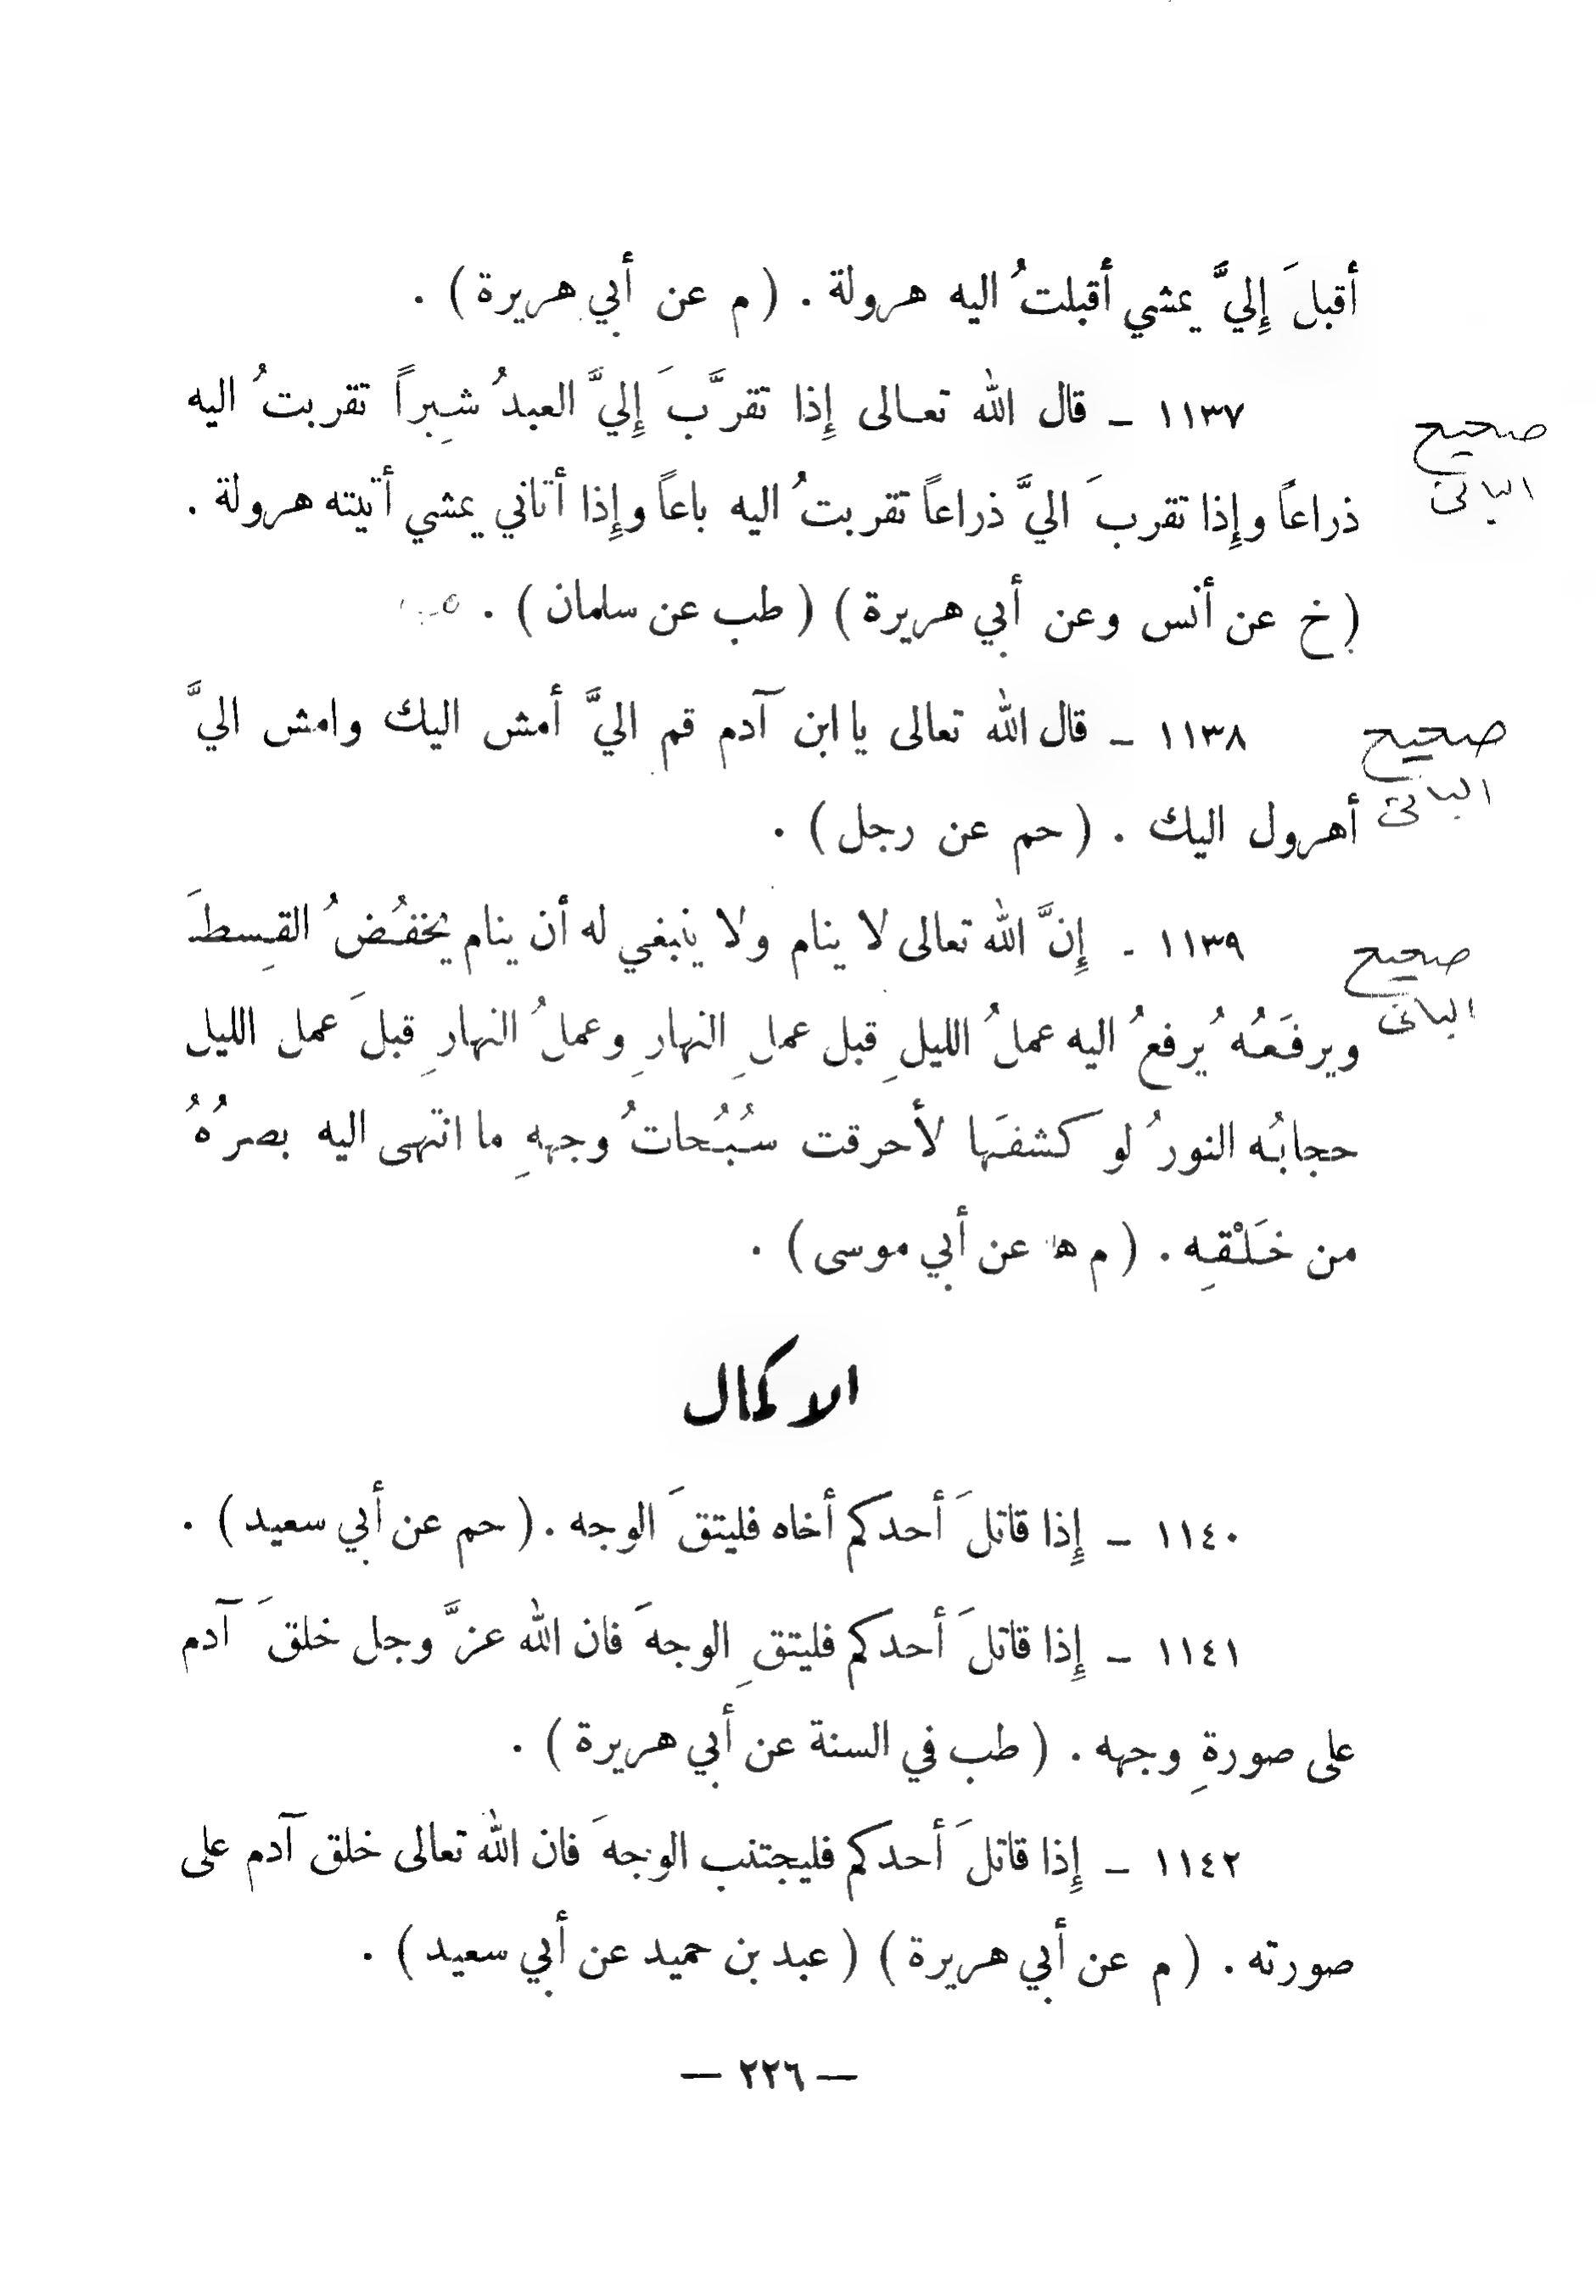 أقبلَ إِليَّ يمشي أقبلتُ اليه هرولة . ( م عن أبي هريرة ) .
١١٣٧ ــ قال الله تعـالى إِذا تقرَّبَ إِليَّ العبدُ شِبراً تقربتُ اليه
صحيح
البانى
ذراعاً وإِذا تقربَ اليَّ ذراعاً تقربتُ اليه باعاً وإِذا أتاني يمشي أتيته هرولة .
( خ عن أنس وعن أبي هريرة ) ( طب عن سلمان ) .
١١٣٨ ــ قال الله تعالى يا ابن آدم قم اليَّ أمش اليك وامش اليَّ
صحيح
البانى
أهرول اليك . ( حم عن رجل ) .
١١٣٩ ـ إِنَّ الله تعالى لا ينام ولا ينبغي له أن ينام يخفُضُ القِسطَ
صحيح
البانى
ويرفَعُه يُرفعُ اليه عملُ الليلِ قبل عملِ النهارِ وعملُ النهارِ قبلَ عمل الليل
حجابُه النورُ لو كشفَها لأحرقت سُبُحاتُ وجههِ ما انتهى اليه بصرُهُ
من خَلْقِه . ( م ه عن أبي موسى ) .
الاكمال
١١٤٠ ــ إِذا قاتلَ أحدكم أخاه فليتقَ الوجه . ( حم عن أبي سعيد ) .
١١٤١ ــ إِذا قاتلَ أحدكم فليتقِ الوجهَ فان الله عزَّ وجل خلقَ آدم
على صورةِ وجهه . ( طب في السنة عن أبي هريرة ) .
١١٤٢ ــ إِذا قاتلَ أحدكم فليجتنب الوجهَ فان الله تعالى خلق آدم على
صورته . ( م عن أبي هريرة ) ( عبد بن حميد عن أبي سعيد ) .
— ٢٢٦ —